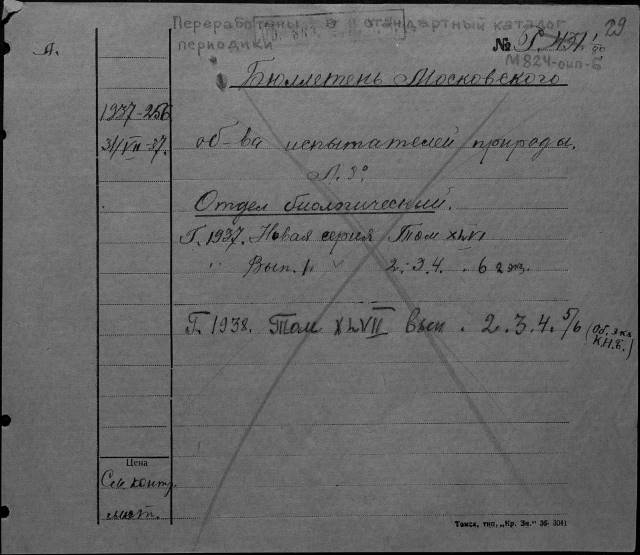 Переработаны в стандартный каталог 29
периодики
Я. № Г. 431
М824-оип-Б
Бюллетень Московского
1937-256
31/VII-37. об-ва испытателей природы.
Отдел биологический.
Г. 1937. Новая серия Том XLVI
" Вып. 1 2. 3. 4. 6 экз.
Г. 1938. Том XLVII вып. 2. 3. 4. 5/6 (Об. экз.
К.Н.Б.)
Цена
См контр.
лист.
Томск, тип. „Кр. Зн." 36 3041